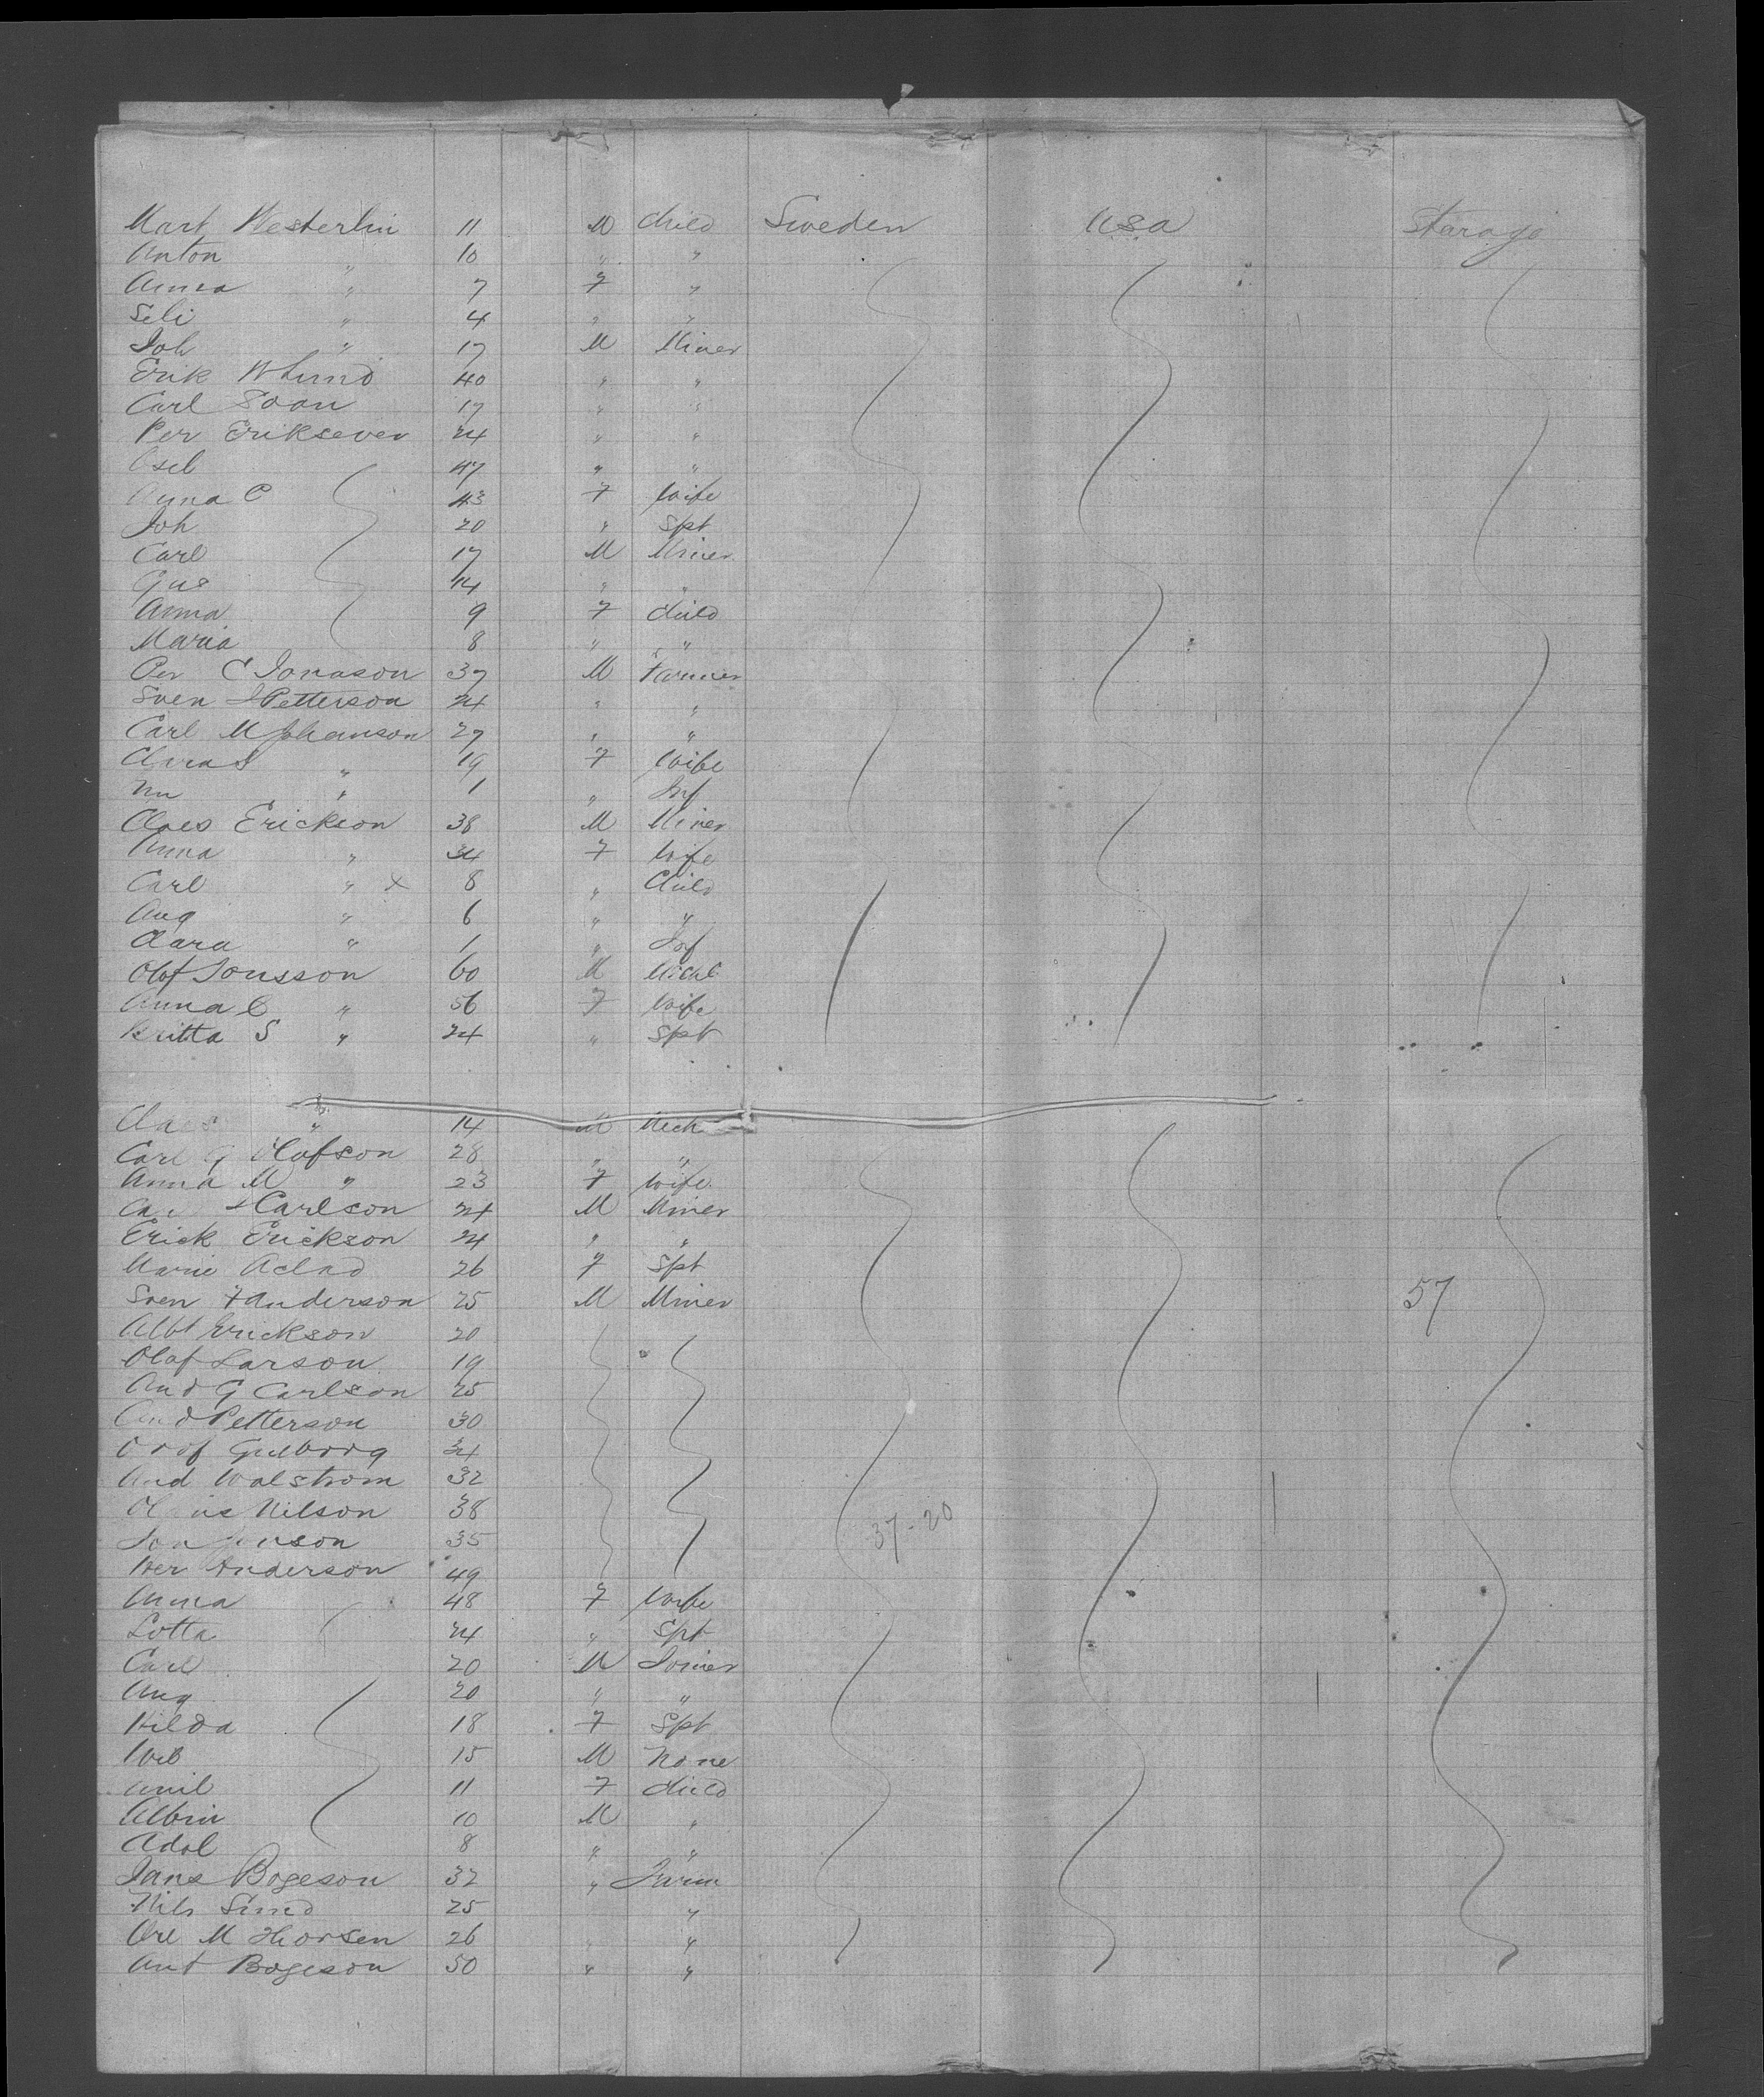 Mart Westerlin 11 M Child Sweden USA Starage
Anton " 10 " "
Anna " 7 F "
Seli " 4 " "
Joh " 17 M Miner
Erik W Lund 40 " "
Carl 17 " "
Per 24 " "
47 " "
Anna C 43 F Wife
Joh 20 " Spt
Carl 17 M Miner
Gus 14 " "
Anna 9 F Child
Maria 8 " "
Per C Jonason 37 M Farmer
Sven J Petterson 24 " "
Carl M Johanson 27 " "
Clara S " 19 F Wife
" 1 " Inf
Claes Erickson 38 M Miner
Anna " 34 F Wife
Carl " x 8 " Child
Aug " 6 " "
Clara " 1 " Inf
Olof Jonsson 60 M Mich
Anna C " 56 F Wife
Britta S " 24 " Spt
Claes " 14 M Mech
Carl G Olofson 28 " "
Anna M " 23 F Wife
Carlson 24 M Miner
Erick Erickson 24 " "
Marie 26 F Spt
Sven F Anderson 25 M Miner 57
Albt Erickson 20
Olof Larson 19 "
And G Carlson 25
And Petterson 30
34
And Walstrom 32
Nilson 38
35 37-20
Per Anderson 49
Anna 48 F Wife
Lotta 24 " Spt
Carl 20 M Joiner
Aug 20 " "
Hilda 18 F Spt
15 M None
Amil 11 F Child
Albin 10 M "
Adol 8 " "
Jans Bogeson 32 " Farm
Nils 25 "
M Thorsen 26 "
Ant Bogeson 50 " "